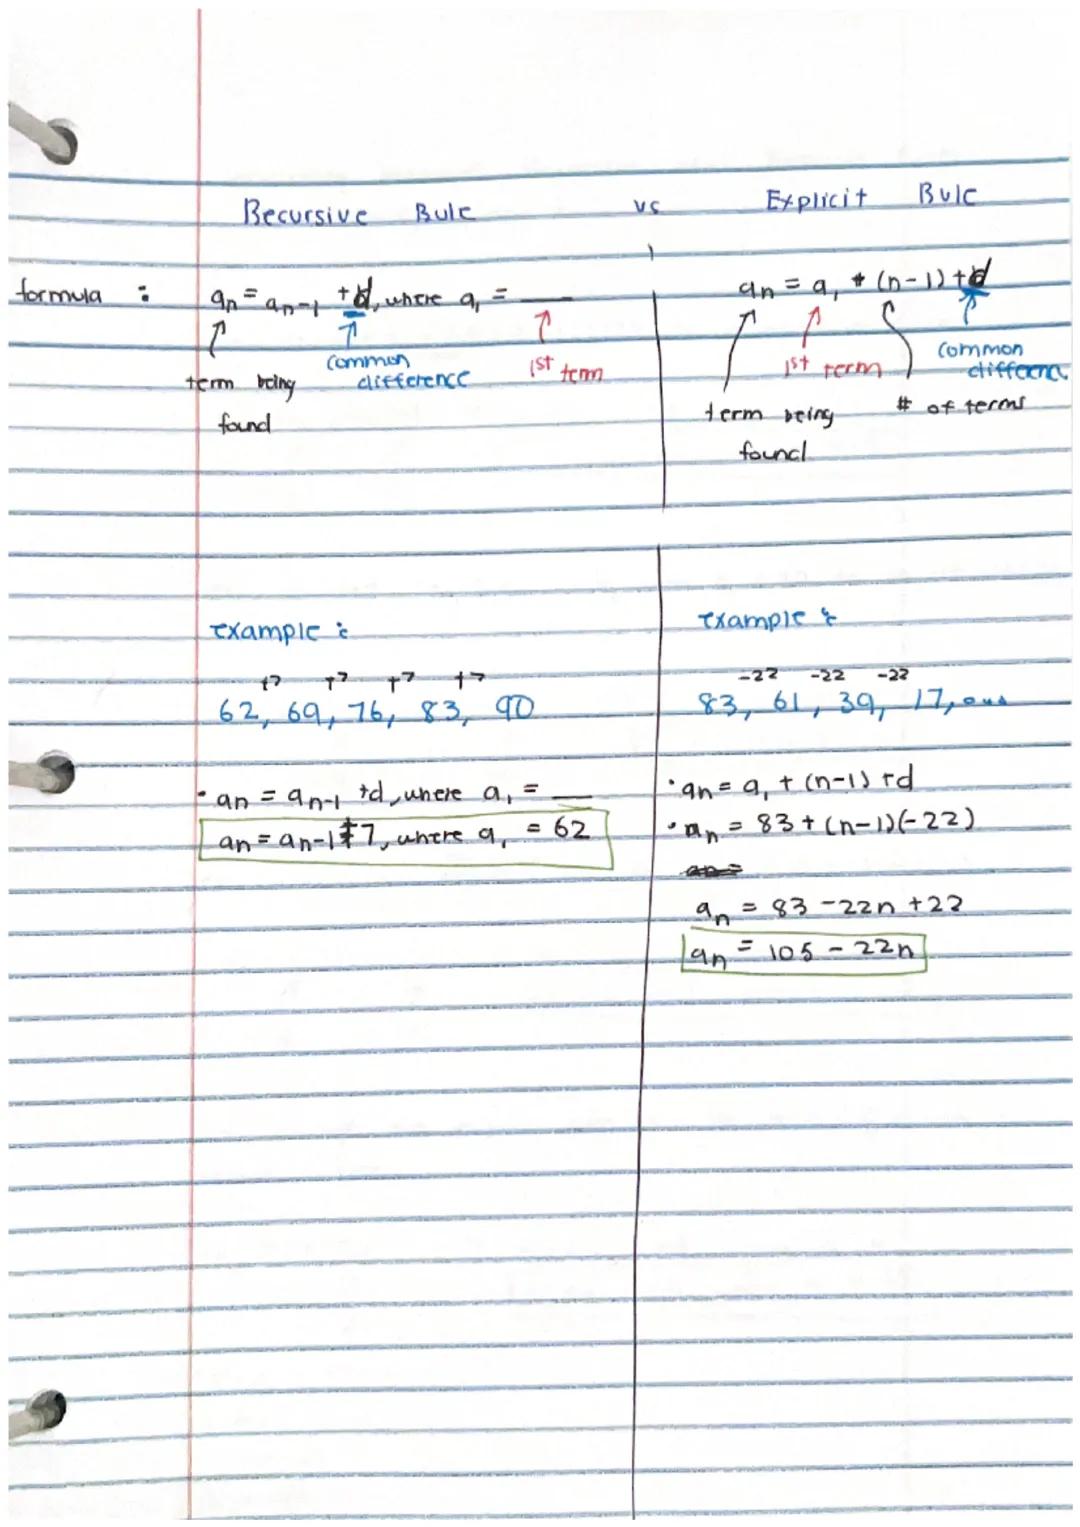 Recursive Rule vs Explicit Rule
formula :
an = an-1 +d, where a1 = ___
term being found
common difference
1st term
an = a1 + (n-1) +d
term being found
1st term
# of terms
common difference
example :
+7 +7 +7 +7
62, 69, 76, 83, 90
· an = an-1 +d, where a1 = ___
an = an-1 +7, where a1 = 62
example :
-22 -22 -22
83, 61, 39, 17, ...
· an = a1 + (n-1) +d
· an = 83 + (n-1)(-22)
an = 83 -22n +22
an = 105 - 22n